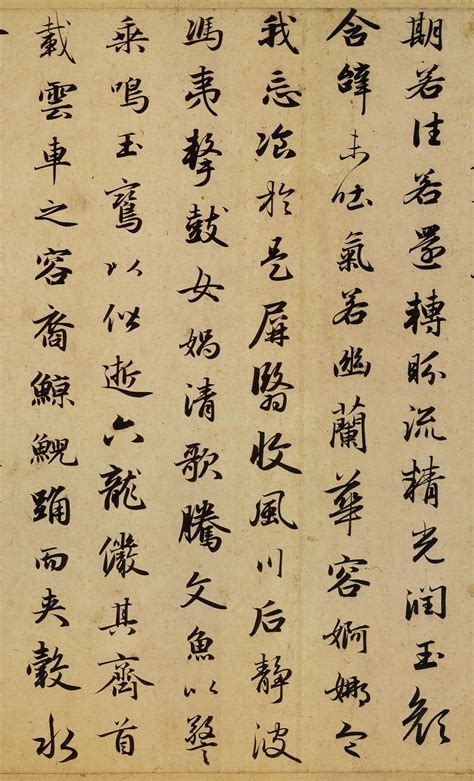 期若往若還轉眄流精光潤玉顏
含辭未吐氣若幽蘭華容婀娜令
我忘飡於是屏翳收風川后靜波
馮夷擊鼓女媧清歌騰文魚以警
乘鳴玉鸞以偕逝六龍儼其齊首
載雲車之容裔鯨鯢踊而夾轂水